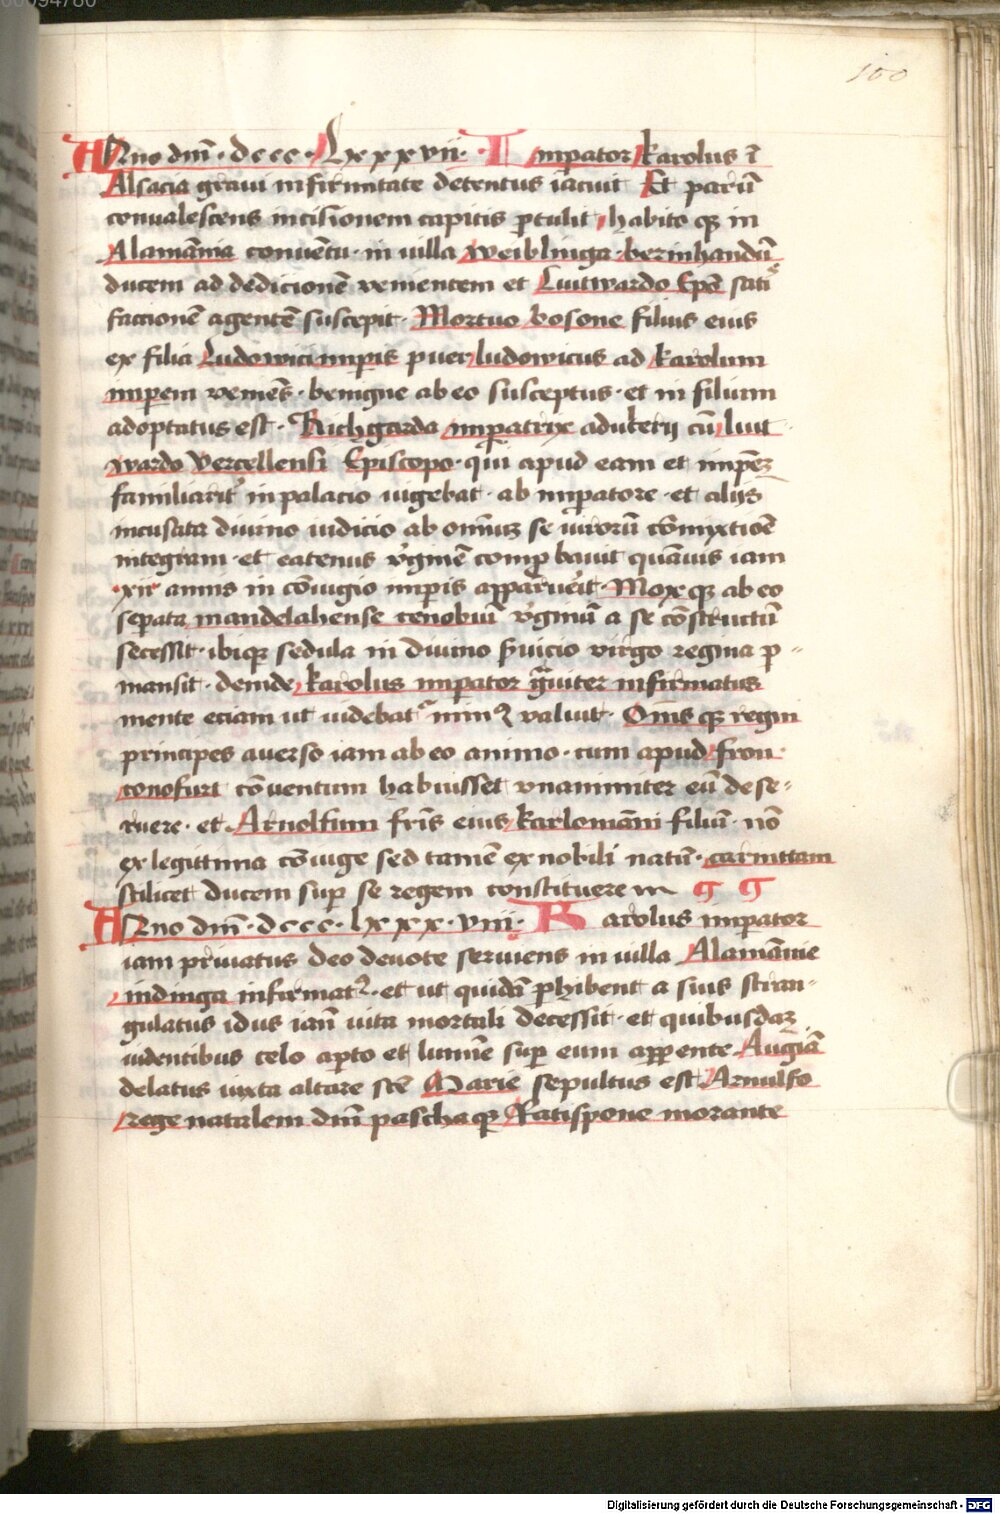 00094780
100
ANno dm̄ · dccc · Lxxxvii · Imperator karolus ī
Alsacia graui infirmitate detentus iacuit Et parū
conualescens incisionem capitis ꝑtulit habito qꝫ in
Alamānia conuētu · in uilla weiblinga · berinhardū
ducem ad dedicionē venientem et Luitwardo Epō satis
faccionē agentē suscepit · Mortuo bosone filius eius
ex filia Ludowici imꝑis puer ludowicus ad karolum
imꝑem veniēs · benigne ab eo susceptus · et in filium
adoptatus est · Richgarda imꝑatrix adulterij cū luit
wardo Vercellensi Episcopo · qui apud eam et imꝑēꝫ
familiarit᾽ in palacio uigebat · ab imꝑatore · et alijs
incusata diuino iudicio ab omīuꝫ se virorū cōmyxtiōe
integram · et eatenus v᾽ginē comꝓbauit quāuis iam
xii annis in cōiugio imꝑis apparuerit · Mox qꝫ ab eo
seꝑata mandelahense cenobiū v᾽ginū a se cōstructū
secessit · ibiqꝫ sedula in diuino s᾽uicio virgo regina ꝑ-
mansit · deinde karolus imꝑator g̃uiter infirmatus
mente eciam ut uidebat᾽ minꝰ valuit · Om̄s qꝫ regni
principes auerso iam ab eo animo · cum apud fron
conofurt cōuentum habuisset vnanimiter eū dese-
ruere · et Arnolfum fr̄is eius karlomāni filiū · nō
ex legittima cōiuge sed tamē ex nobili natū · carinttam
scilicet ducem suꝑ se regem constituere
ANno dm̄ · dccc · lxxx · viii · Karolus imꝑator
iam priuatus deo deuote seruiens in uilla Alamānie
indinga infirmatꝰ · et ut quidā ꝓhibent a suis stran-
gulatus idus ian̄ uita mortali decessit · et quibusdaꝫ
uidentibus celo aꝑto et lumīe suꝑ eum apparente Augiā
delatus iuxta altare sc̄e Marie sepultus est Arnulfo
rege natalem dm̄ pascha qꝫ Ratispone morante
Digitalisierung gefördert durch die Deutsche Forschungsgemeinschaft - DFG